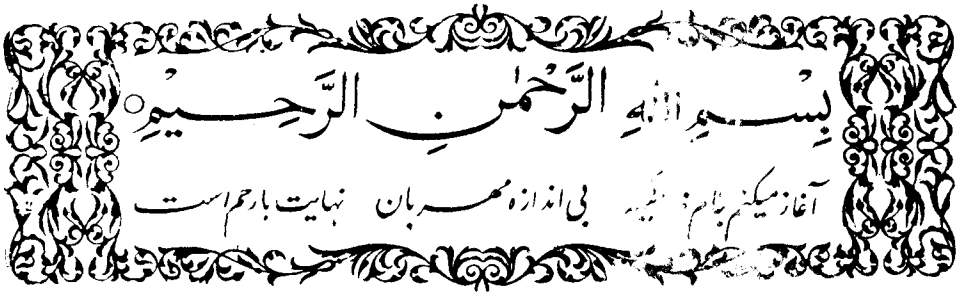 بِسْمِ اللهِ الرَّحْمٰنِ الرَّحِیْمِ ○
آغاز میکنم بنام بی اندازه مهربان نهایت بارحم است